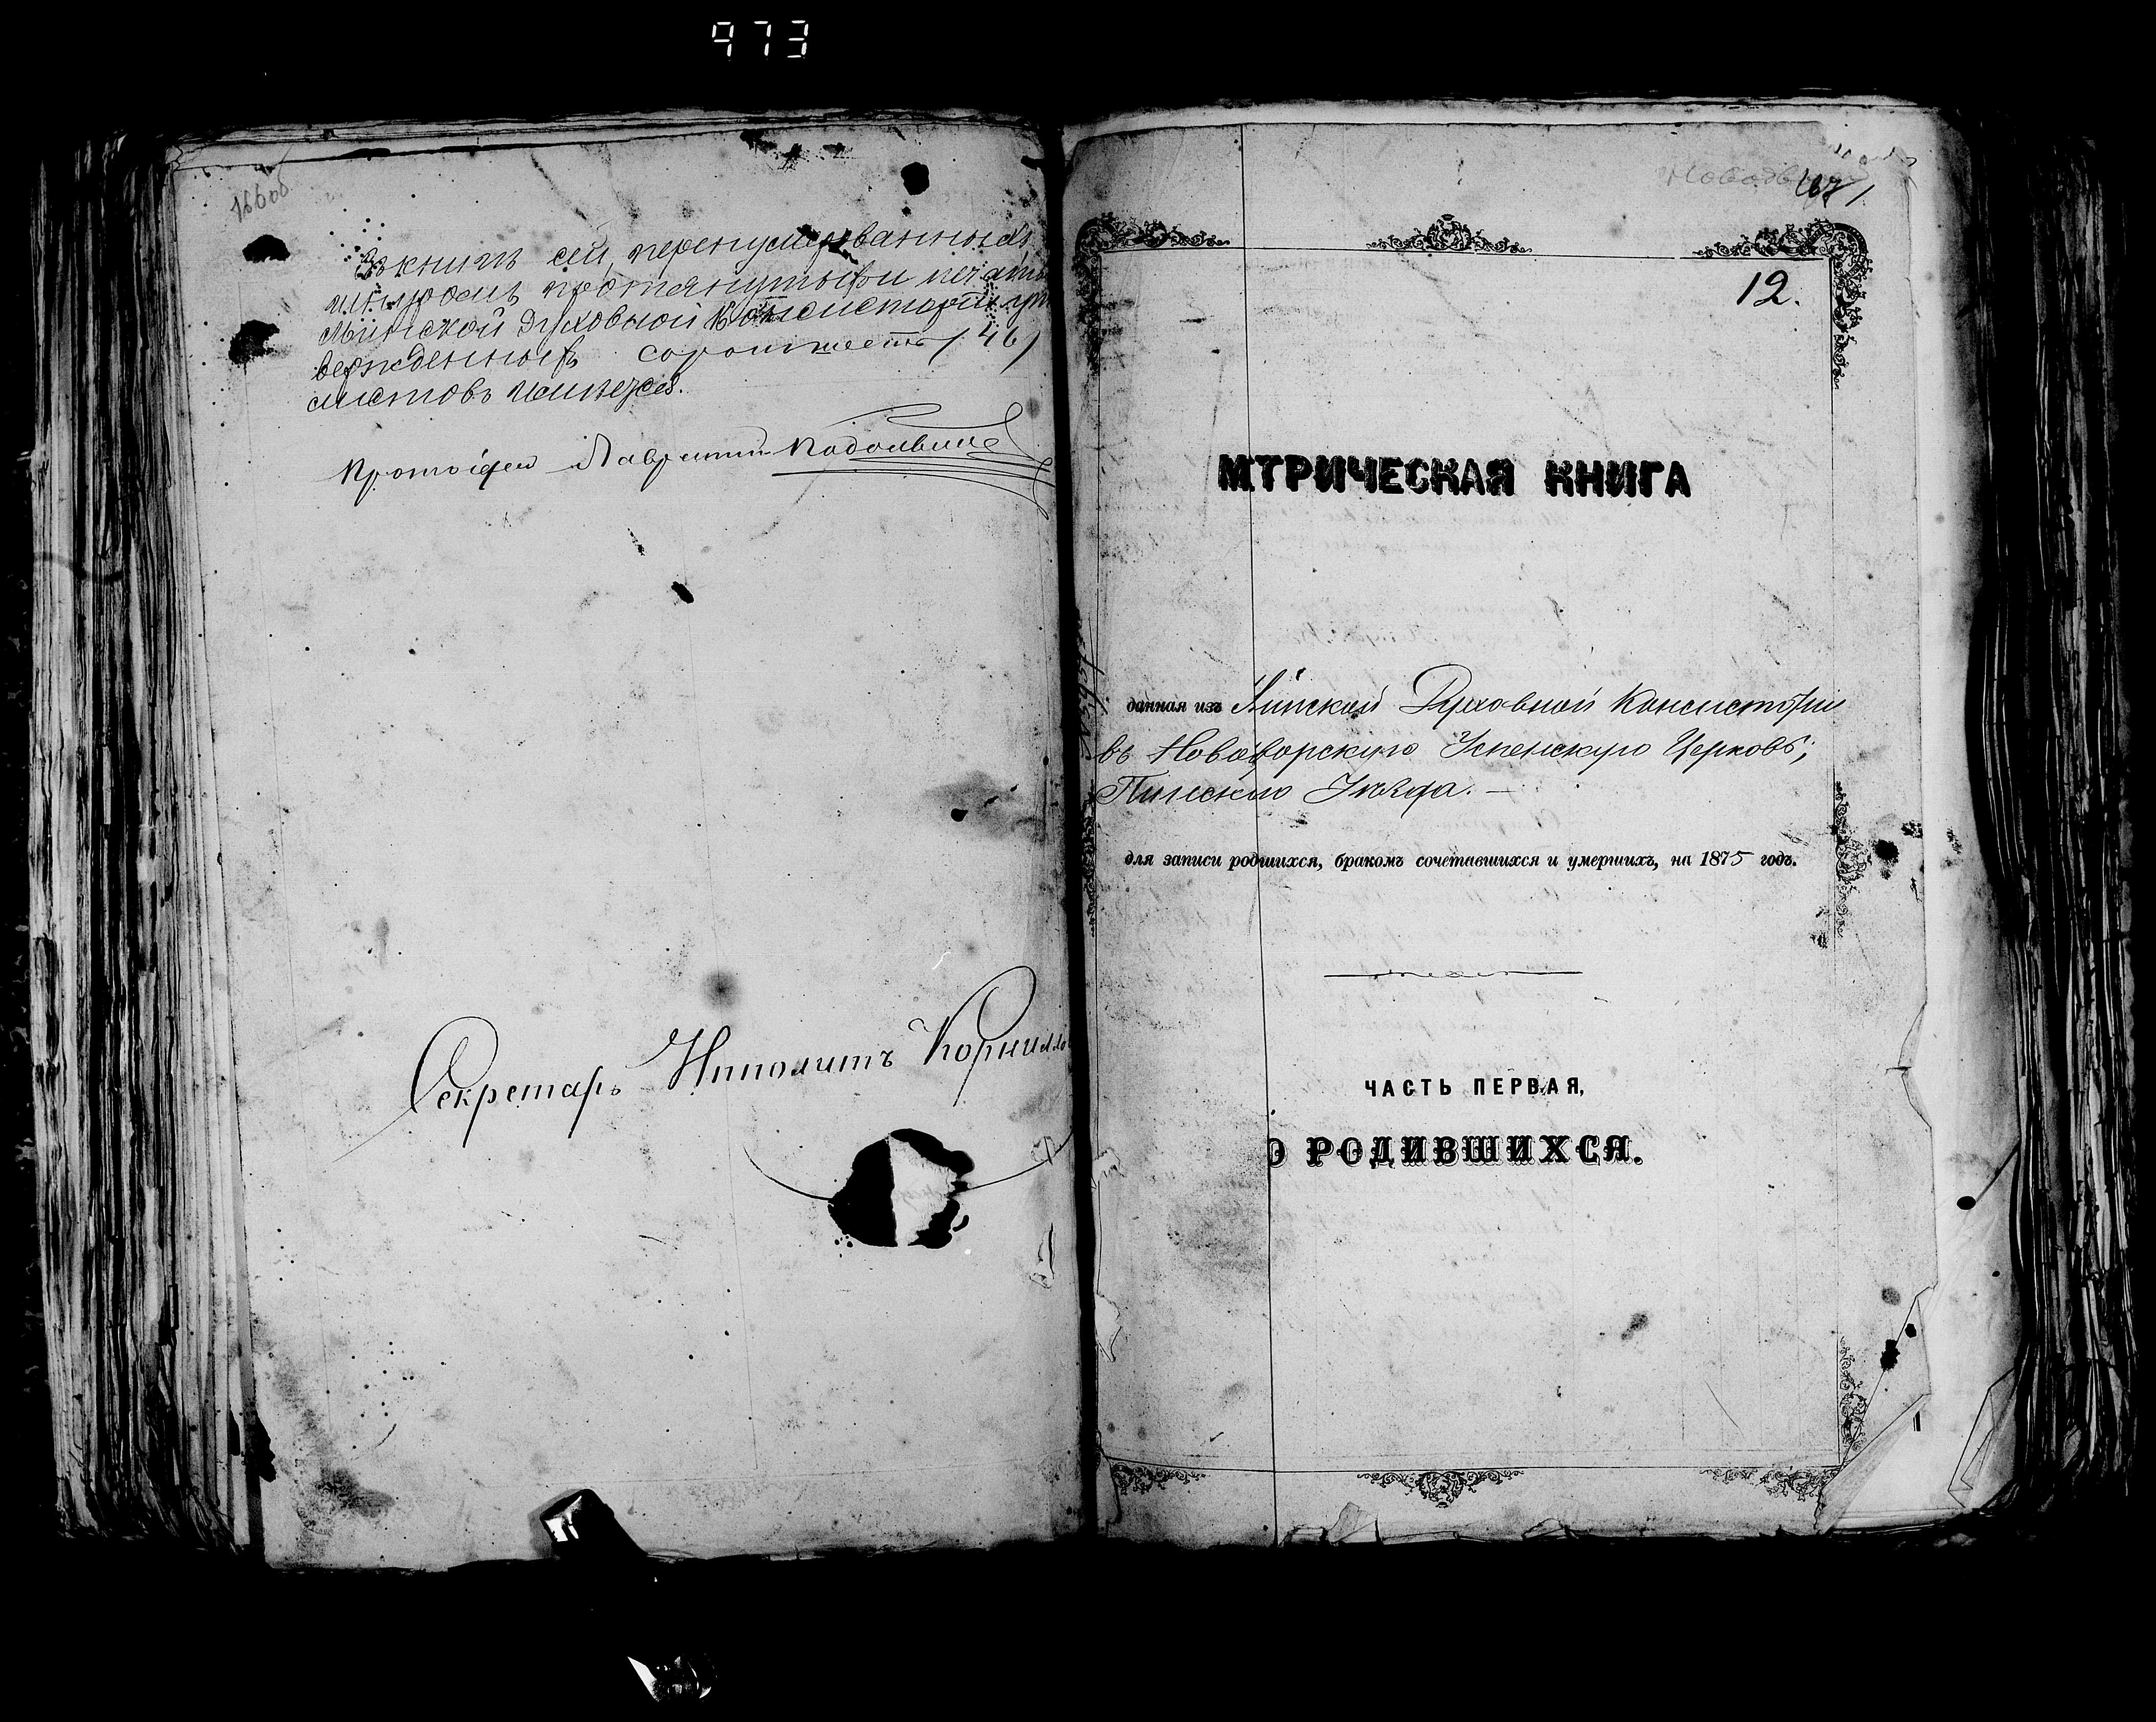 973
166об
Въ книгѣ сей, перенумерованныхъ,
шнуромъ протянутыхъ и печатью
Минской Духовной Консисторіи ут
вержденныхъ сорокъ шесть (46)
листовъ имѣется.
Протоіерей Лаврентій
Секретарь Ипполитъ Корнилло
167
12.
МТРИЧЕСКАЯ КНИГА
данная изъ Минской Духовной Консисторіи
въ Новодворскую Успенскую Церковь,
Пинскаго Уѣзда. —
для записи родшихся, бракомъ сочетавшихся и умершихъ, на 1875 годъ.
ЧАСТЬ ПЕРВАЯ,
О РОДИВШИХСЯ.